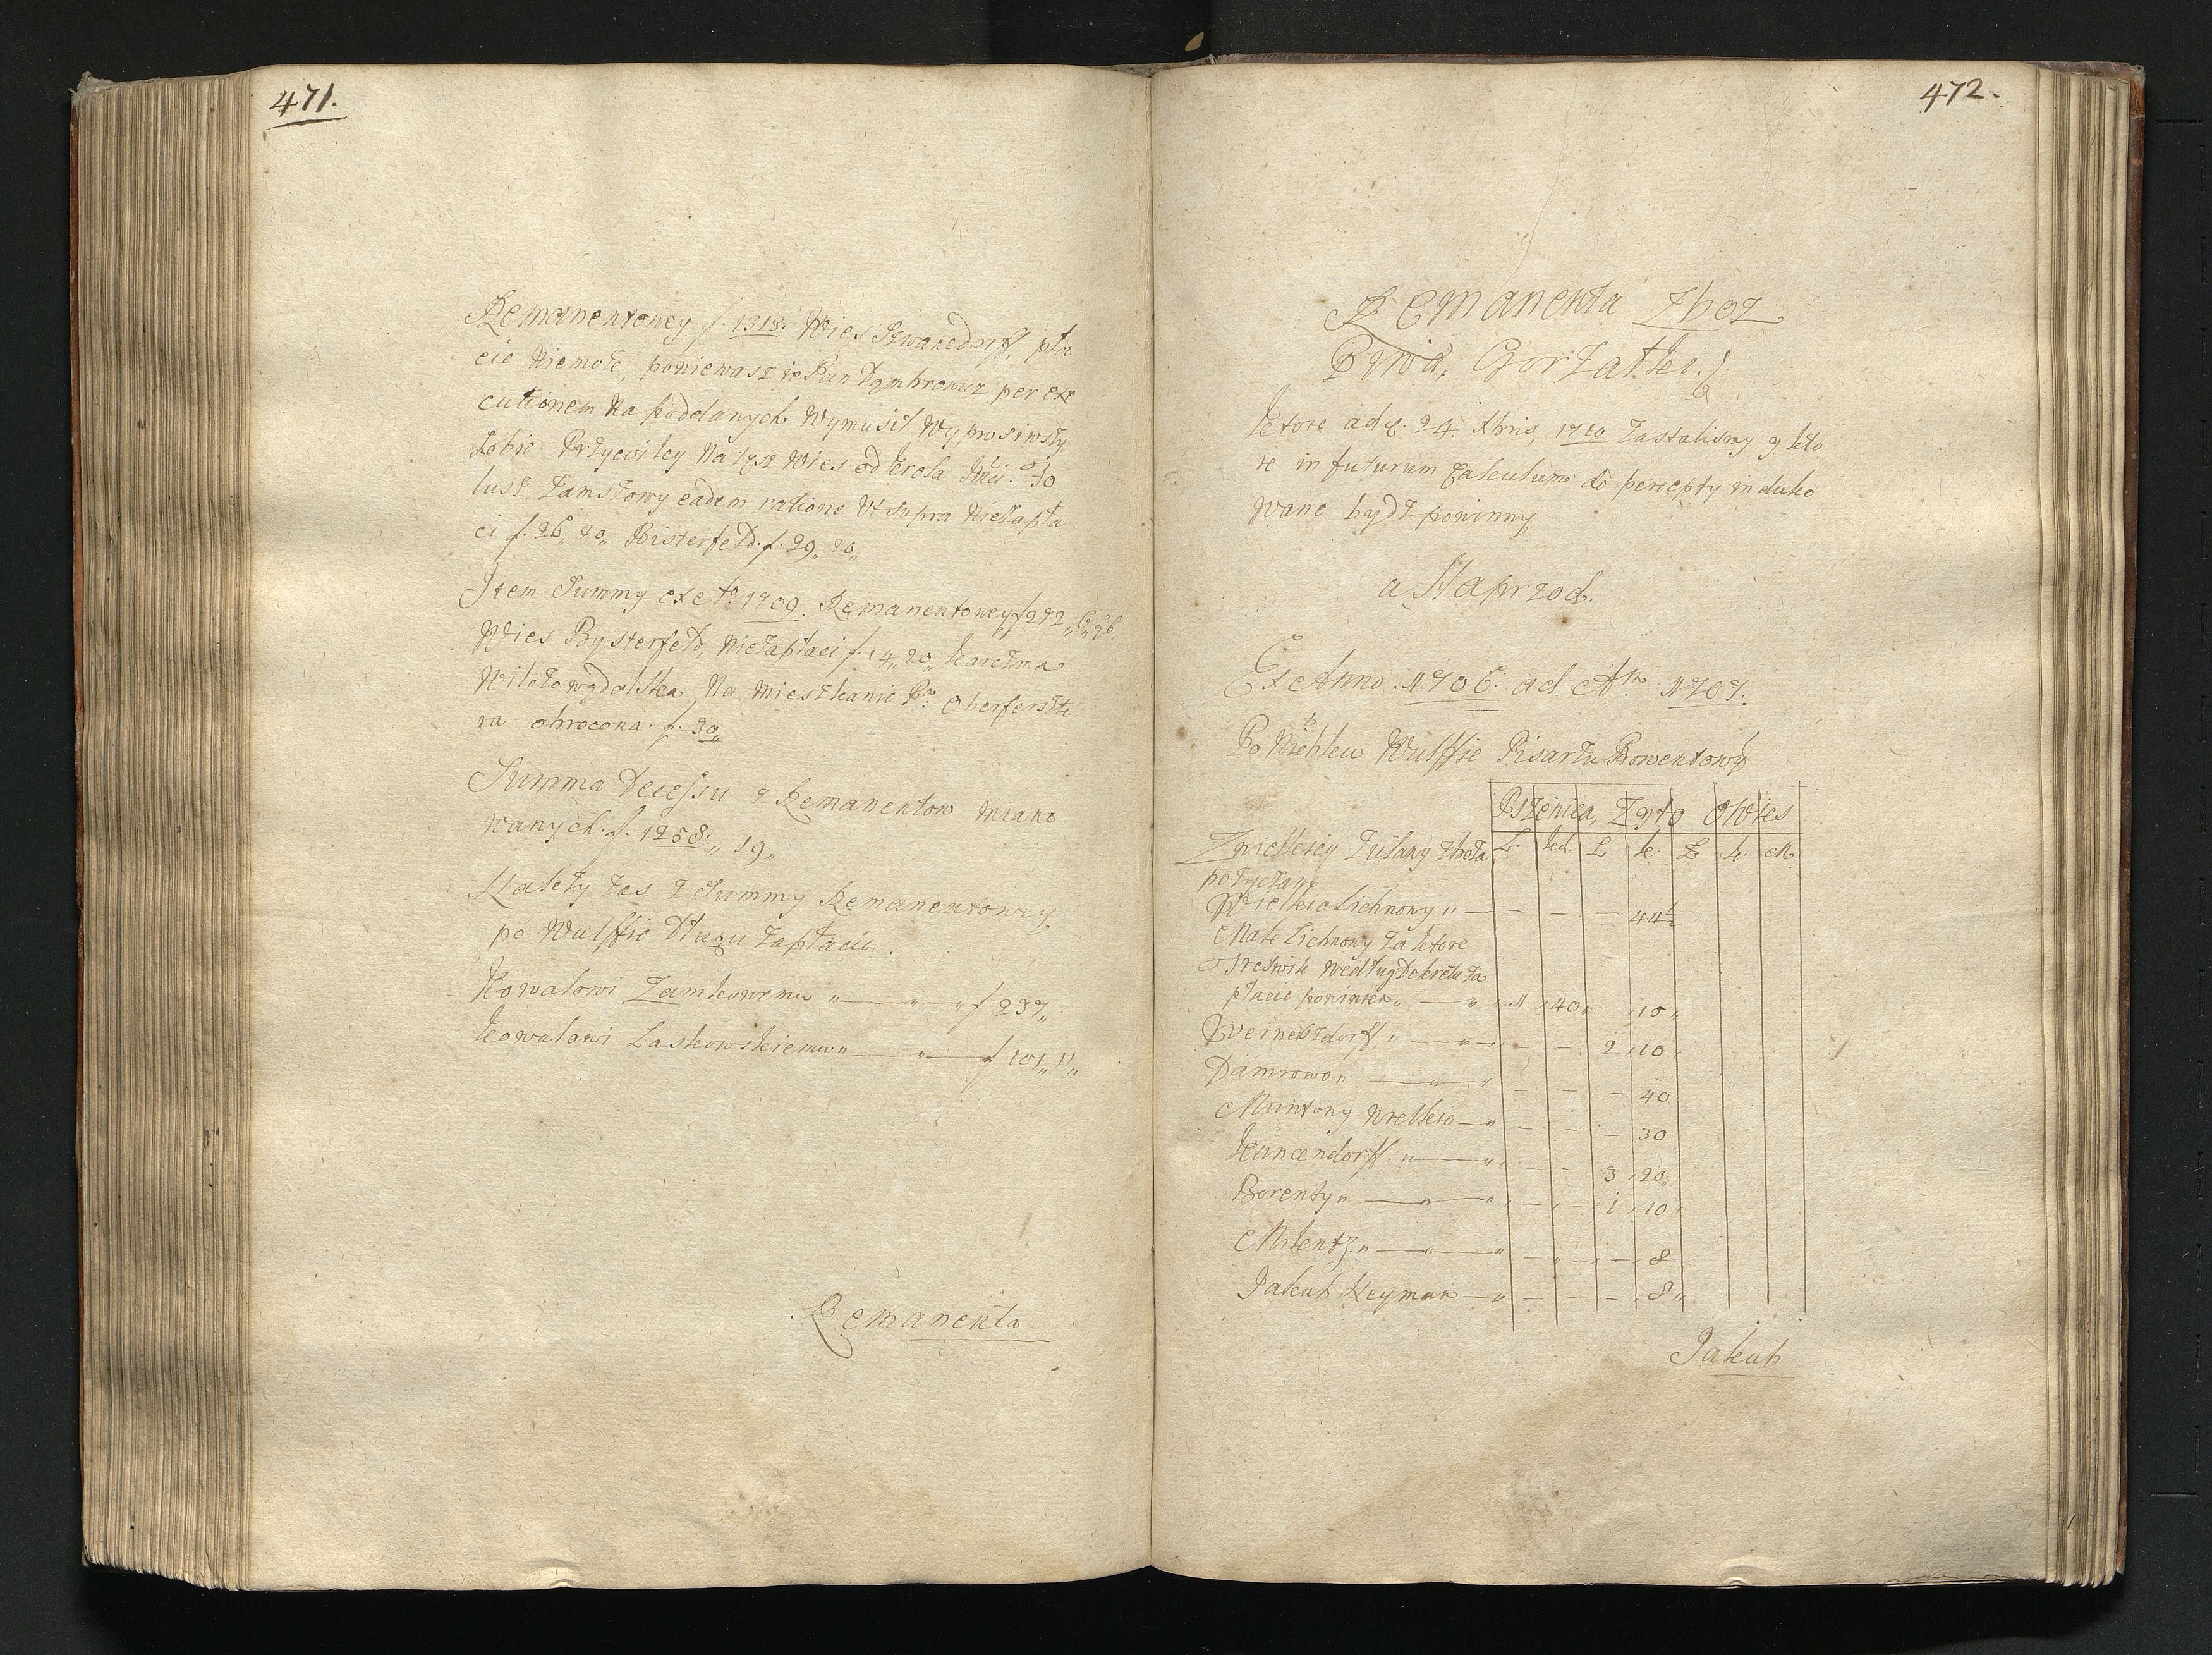 471.
Remanentowey f. 1318. Wies Szwancdorff, płac
cic niemoże, poniewasz ie Pan Dąmbrowicz per exe
cutionem na poddanych wymusił wyprosiwszy
sobie Przywiley na tysz wies od Krola Jmci. To
lusz Zamstowy eadem ratione ut supra niezapła
ci f. 26,, 20,, Bisterfeld. f. 29,, 20,,
Item Summy ex Ao 1709. Remanentowey f 272
Wies Bysterfeld, niezapłaci f. 14,, 20,, karczma
na mieszkanie Pa. Oberferszte
ra obrocona. f. 30,,
Summa Decessu z Remanentow miano
wanych. f. 1258,, 19,,
Należy zas z Summy Remanentowey
po Wulffie Długu zapłacic.
Kowalowi Zamkowemu ,, — ,, — ,, f 237,,
Kowalowi Laskowskiemu ,, — ,, — f 101,, 11,,
Remanenta
472.
Remanenta Zboz
Piwa, Gorzałki.
ktore ad d. 24. Xbris, 1710 zastalismy y kto
re in futurum Calculum do percepty induko
wane bydz powinny
a Naprzod.
Ex Anno. 1706. ad An. 1707.
Po Niebſzcu Wulffie Pisarzu Prowentowy
Pszenica, Zyto Owies
Zwielkiey Zuławy zboża Ł. k. Ł k. Ł k. M
pożyczane
Wielkie Lichnowy ,, — — — — 41½
Małe Lichnowy za ktore
Treswik według Dekretu za
płacic powinien ,, — ,, 1 ,, 40 ,, ,, 15 ,,
Wernerszdorff, ,, — ,, — — 2 ,, 10 ,,
Damrowo ,, — ,, — — — 40
Muntowy Wielkie — ,, — — — 30
Kuncendorff. ,, — ,, — — 3 ,, 20 ,,
Borenty ,, — ,, — — 1 ,, 10 ,,
Milentz ,, — ,, — — — 8
Jakub Neyman — ,, — — — 8 ,,
Jakub